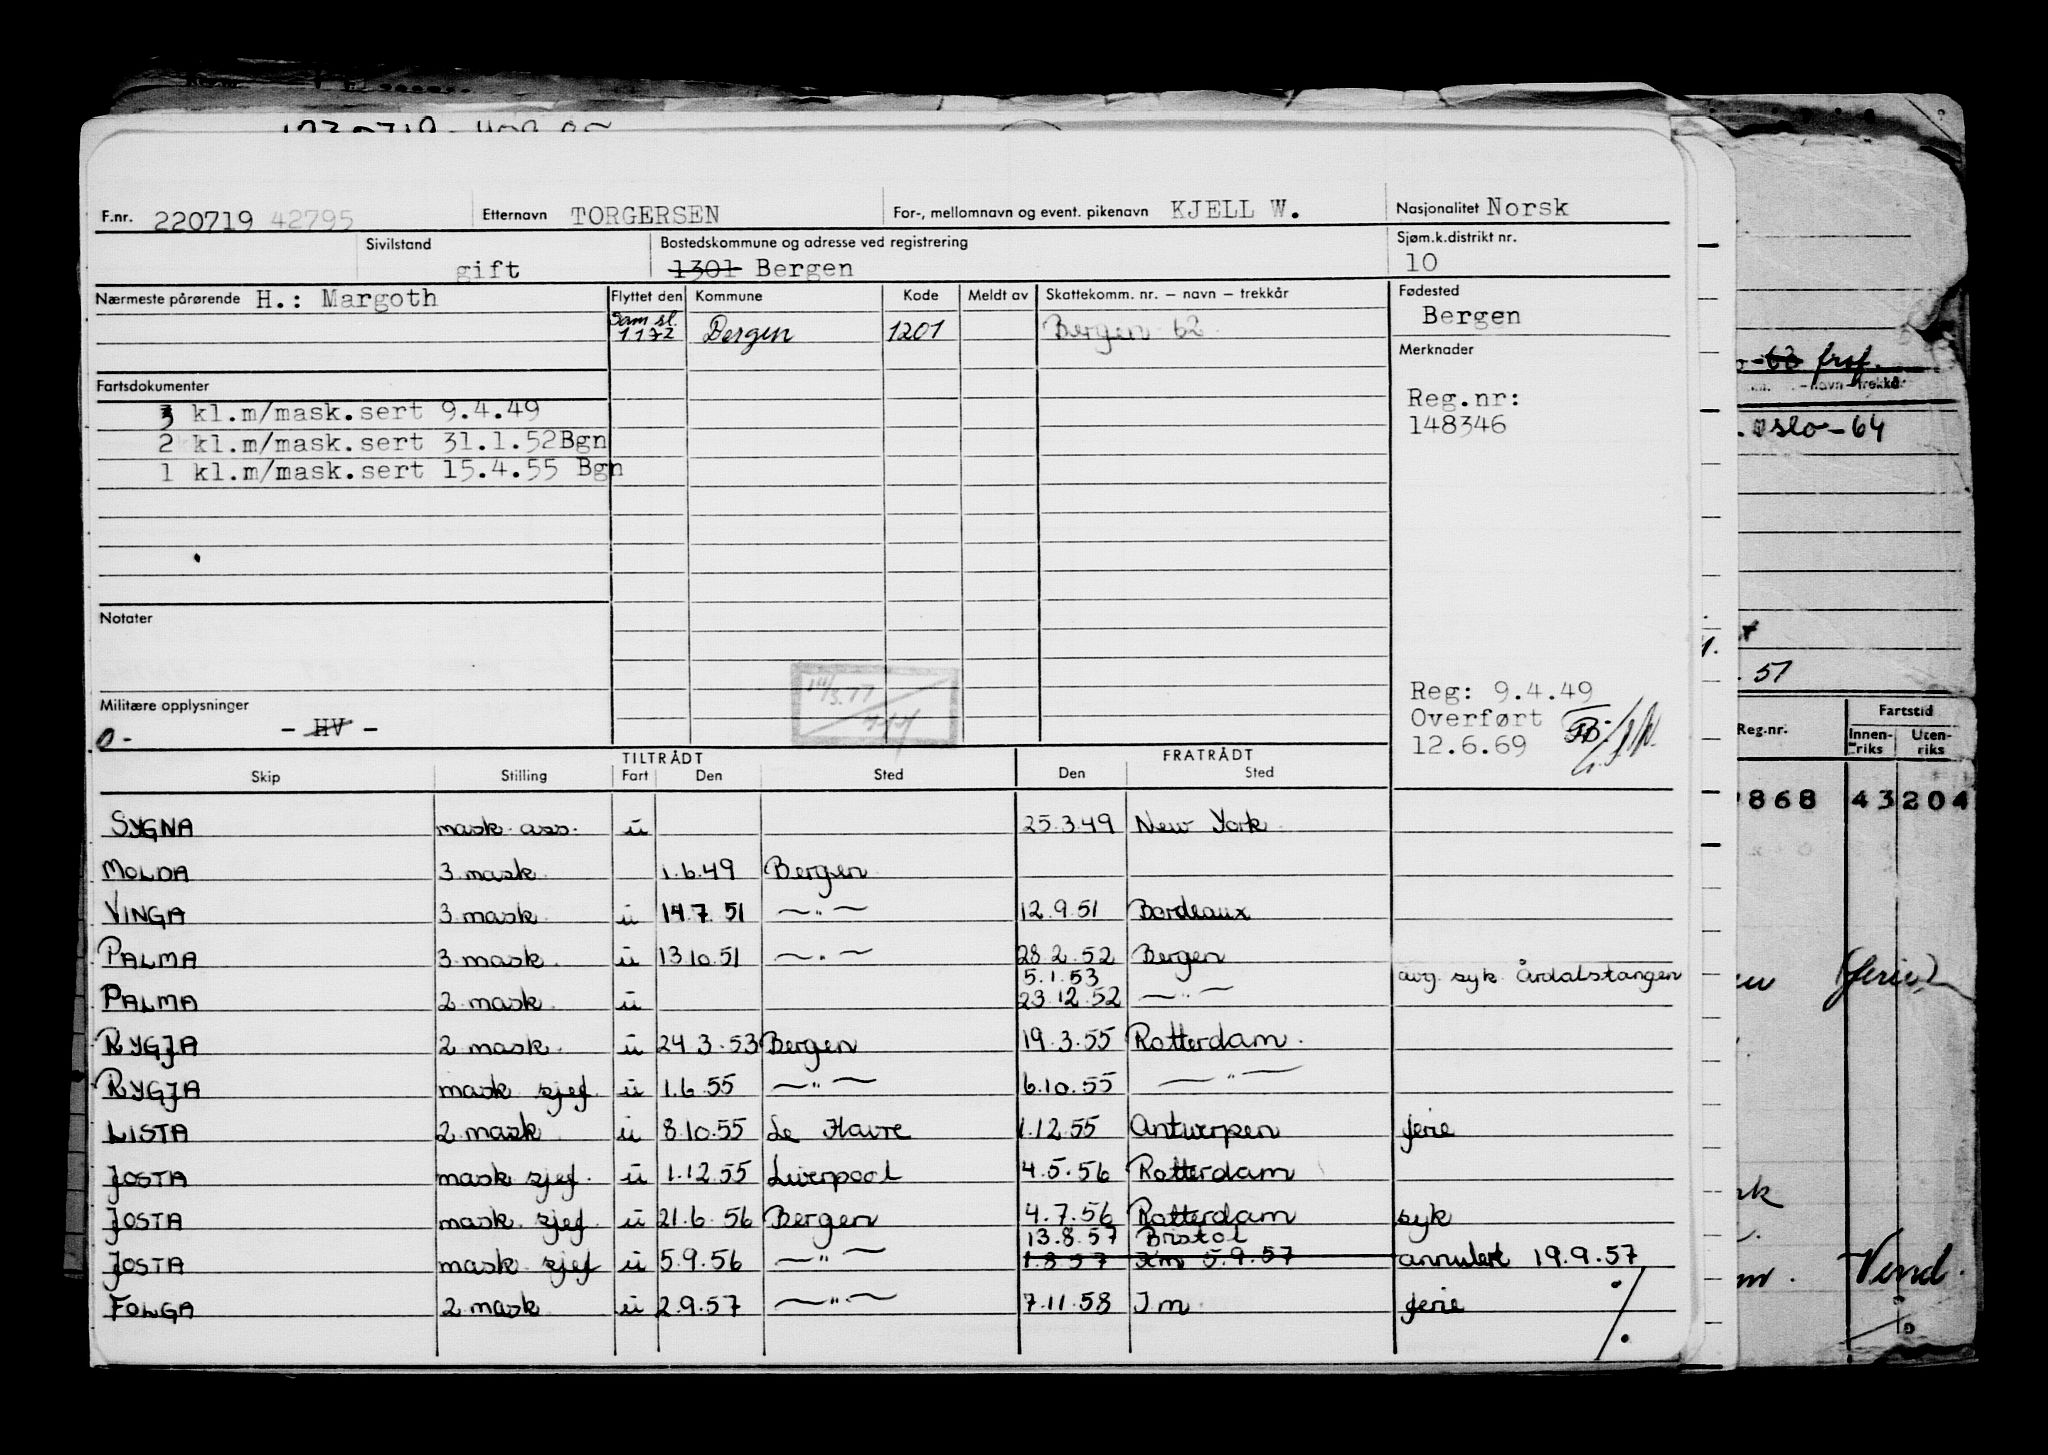 F.nr. 220719 42795 Etternavn TORGERSEN For-, mellomnavn og event. pikenavn KJELL W. Nasjonalitet Norsk
Sivilstand gift Bostedskommune og adresse ved registrering 1301 Bergen Sjøm.k.distrikt nr. 10
Nærmeste pårørende H.: Margoth Flyttet den Kommune Kode Meldt av Skattekomm. nr. – navn – trekkår Fødested
Bergen
Sam.sl. 1172 Bergen 1201 Bergen 62
Merknader
Fartsdokumenter
3 kl.m/mask.sert 9.4.49
2 kl.m/mask.sert 31.1.52Bgn
1 kl.m/mask.sert 15.4.55 Bgn
Reg.nr:
148346
Notater
Militære opplysninger
0- - HV -
14/3.77
Reg: 9.4.49
Overført
12.6.69
TILTRÅDT FRATRÅDT
Skip Stilling Fart Den Sted Den Sted
SYGNA mask. ass. u 25.3.49 New York
MOLDA 3 mask 1.6.49 Bergen
VINGA 3 mask u 14.7.51 —"— 12.9.51 Bordeaux
PALMA 3 mask. u 13.10.51 —"— 28.2.52 Bergen
5.1.53 avg. syk Årdalstangen
PALMA 2 mask u 23.12.52 —"—
RYGJA 2 mask. u 24.3.53 Bergen 19.3.55 Rotterdam.
RYGJA mask sjef. u 1.6.55 —"— 6.10.55 —"—
LISTA 2 mask u 8.10.55 Le Havre 1.12.55 Antwerpen ferie
JOSTA mask sjef. u 1.12.55 Liverpool 4.5.56 Rotterdam
JOSTA mask. sjef u 21.6.56 Bergen 4.7.56 Rotterdam syk
13.8.57 Bristol
JOSTA mask sjef u 5.9.56 —"— 1.8.57 Fm 5.9.57 annulert 19.9.57
FOLGA 2 mask u 2.9.57 —"— 7.11.58 Im ferie
-63 frsf.
– navn – trekkå
Oslo-64
51
Reg.nr. Fartstid
Innen-riks Uten-riks
868 43 204
(ferie)
Vend.